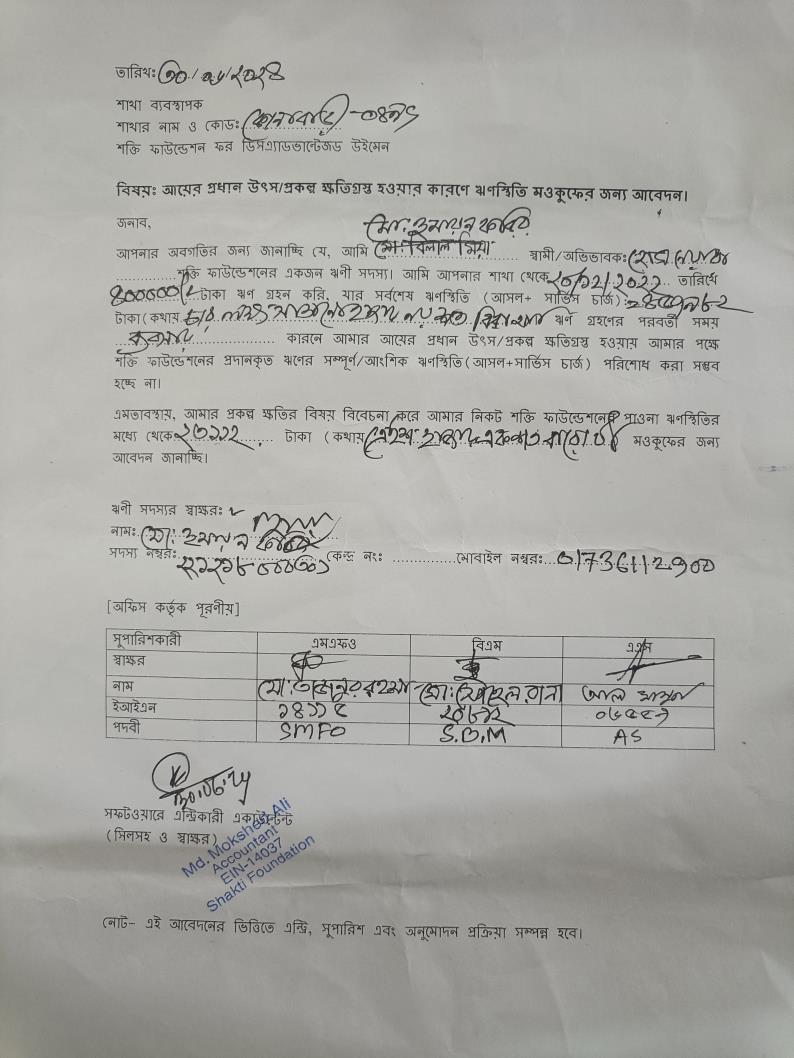 তারিখঃ ৩০/০৬/২০২৪
শাখা ব্যবস্থাপক
শাখার নাম ও কোডঃ কোনাবাড়ি -
শক্তি ফাউন্ডেশন ফর ডিসএ্যাডভান্টেজড উইমেন
বিষয়ঃ আয়ের প্রধান উৎস/প্রকল্প ক্ষতিগ্রস্থ হওয়ার কারণে ঋণস্থিতি মওকুফের জন্য আবেদন।
জনাব,
মো: হুমায়ন কবির
আপনার অবগতির জন্য জানাচ্ছি যে, আমি মো: বিলাল মিয়া স্বামী/অভিভাবকঃ
শক্তি ফাউন্ডেশনের একজন ঋণী সদস্য। আমি আপনার শাখা থেকে তারিখে
৪০০০০০/= টাকা ঋণ গ্রহন করি, যার সর্বশেষ ঋণস্থিতি (আসল+ সার্ভিস চার্জ):
টাকা (কথায় ঋণ গ্রহণের পরবর্তী সময়
কারনে আমার আয়ের প্রধান উৎস/প্রকল্প ক্ষতিগ্রস্থ হওয়ায় আমার পক্ষে
শক্তি ফাউন্ডেশনের প্রদানকৃত ঋণের সম্পূর্ণ/আংশিক ঋণস্থিতি(আসল+সার্ভিস চার্জ) পরিশোধ করা সম্ভব
হচ্ছে না।
এমতাবস্থায়, আমার প্রকল্প ক্ষতির বিষয় বিবেচনা করে আমার নিকট শক্তি ফাউন্ডেশনের পাওনা ঋণস্থিতির
মধ্যে থেকে ২৩১১২ টাকা (কথায় তেইশ হাজার একশত বারো মওকুফের জন্য
আবেদন জানাচ্ছি।
ঋণী সদস্যর স্বাক্ষরঃ
নামঃ মো: হুমায়ন কবির
সদস্য নম্বরঃ কেন্দ্র নংঃ মোবাইল নম্বরঃ
[অফিস কর্তৃক পূরণীয়]
সুপারিশকারী এমএফও বিএম এএস
স্বাক্ষর
নাম মো: মো: সোহেল রানা আল মামুন
ইআইএন ১৪১১৫
পদবী SMFO S.B.M AS
30.06.24
সফটওয়ারে এন্ট্রিকারী একাউন্টেন্ট
(সিলসহ ও স্বাক্ষর)
Md. Mokshed Ali
Accountant
EIN-14037
Shakti Foundation
নোট- এই আবেদনের ভিত্তিতে এন্ট্রি, সুপারিশ এবং অনুমোদন প্রক্রিয়া সম্পন্ন হবে।